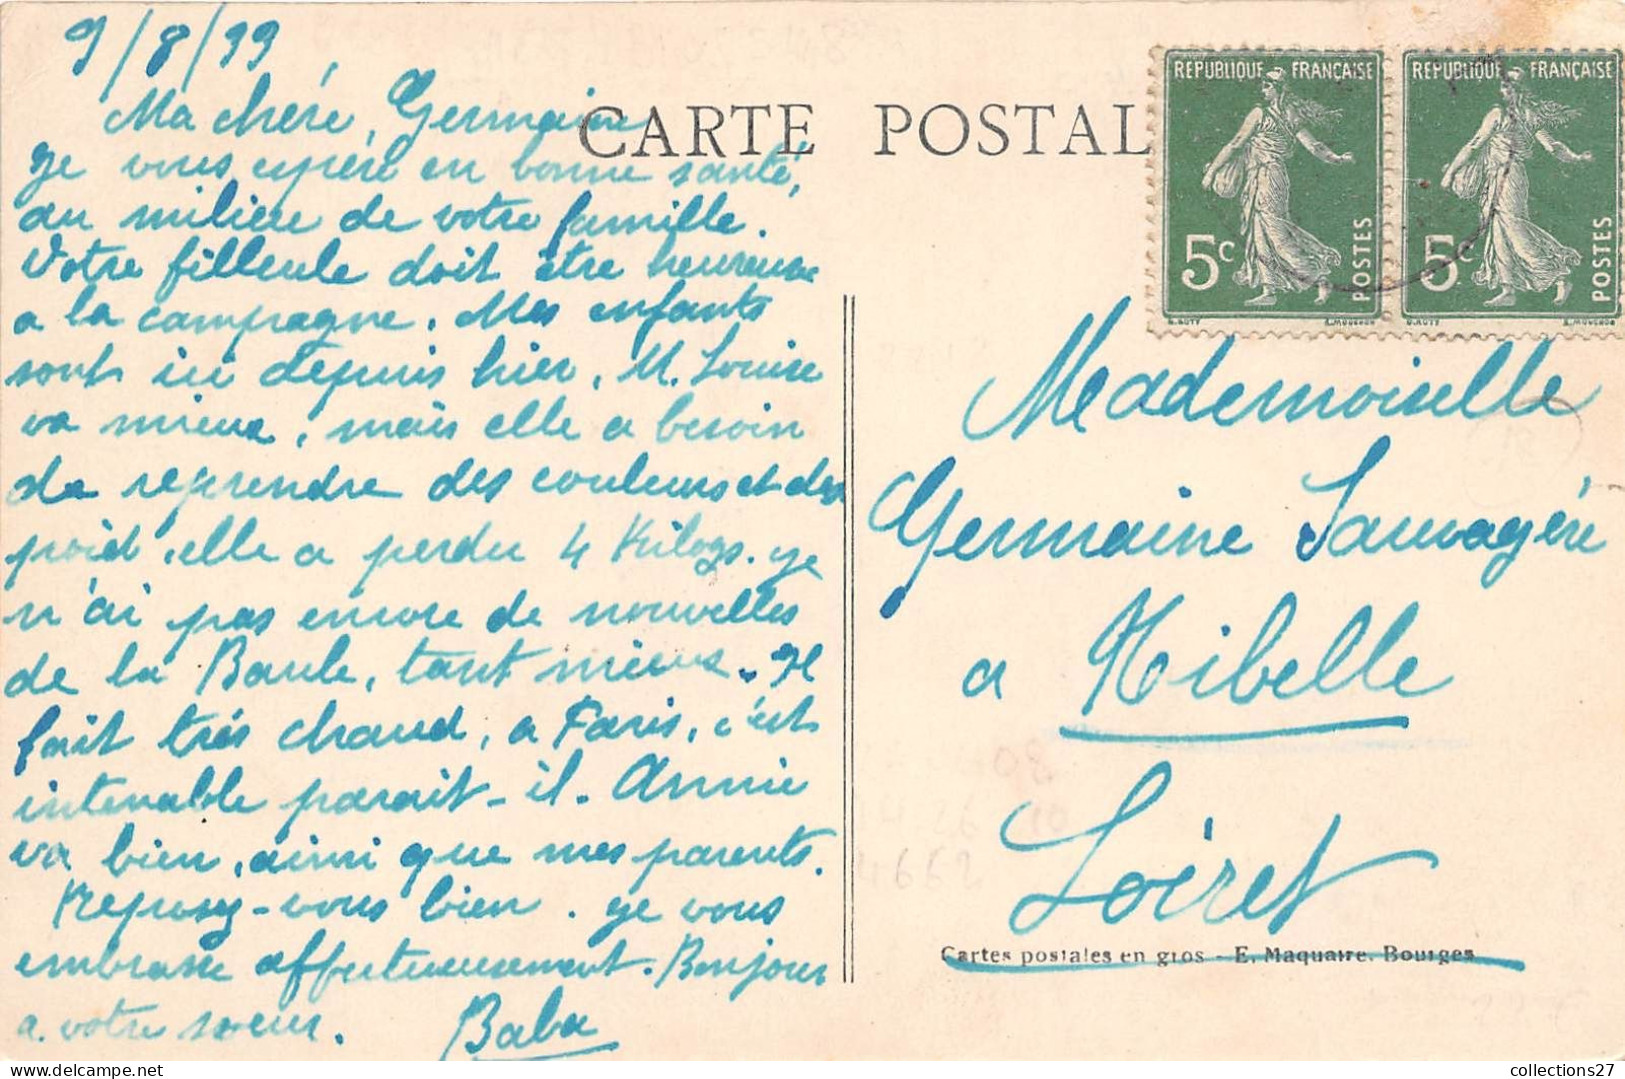 9/8/19
Ma chére, Germaine
je vous espére en bonne santé,
au miliere de votre famille.
Votre filleule doit être heureuse
a la campagne. Mes enfants
sont ici depuis hier. M. Louise
va mieux, mais elle a besoin
de reprendre des couleurs et des
poid, elle a perdu 4 Kilogs. je
n'ai pas encore de nouvelles
de la Baule, tant mieux. Il
fait trés chaud, a Paris, c'est
intenable parait-il. Annie
va bien, ainsi que mes parents.
Reposez-vous bien. je vous
embrasse affectueusement. Bonjour
a votre soeur. Baba
CARTE POSTAL
REPUBLIQUE FRANÇAISE
5c
POSTES
O. ROTY
L. MOUCHON
REPUBLIQUE FRANÇAISE
5c
POSTES
O. ROTY
L. MOUCHON
Mademoiselle
Germaine Sauvagére
a Nibelle
Loiret
08
14 26 10
4662
Cartes postales en gros - E. Maquaire. Bourges
collections27